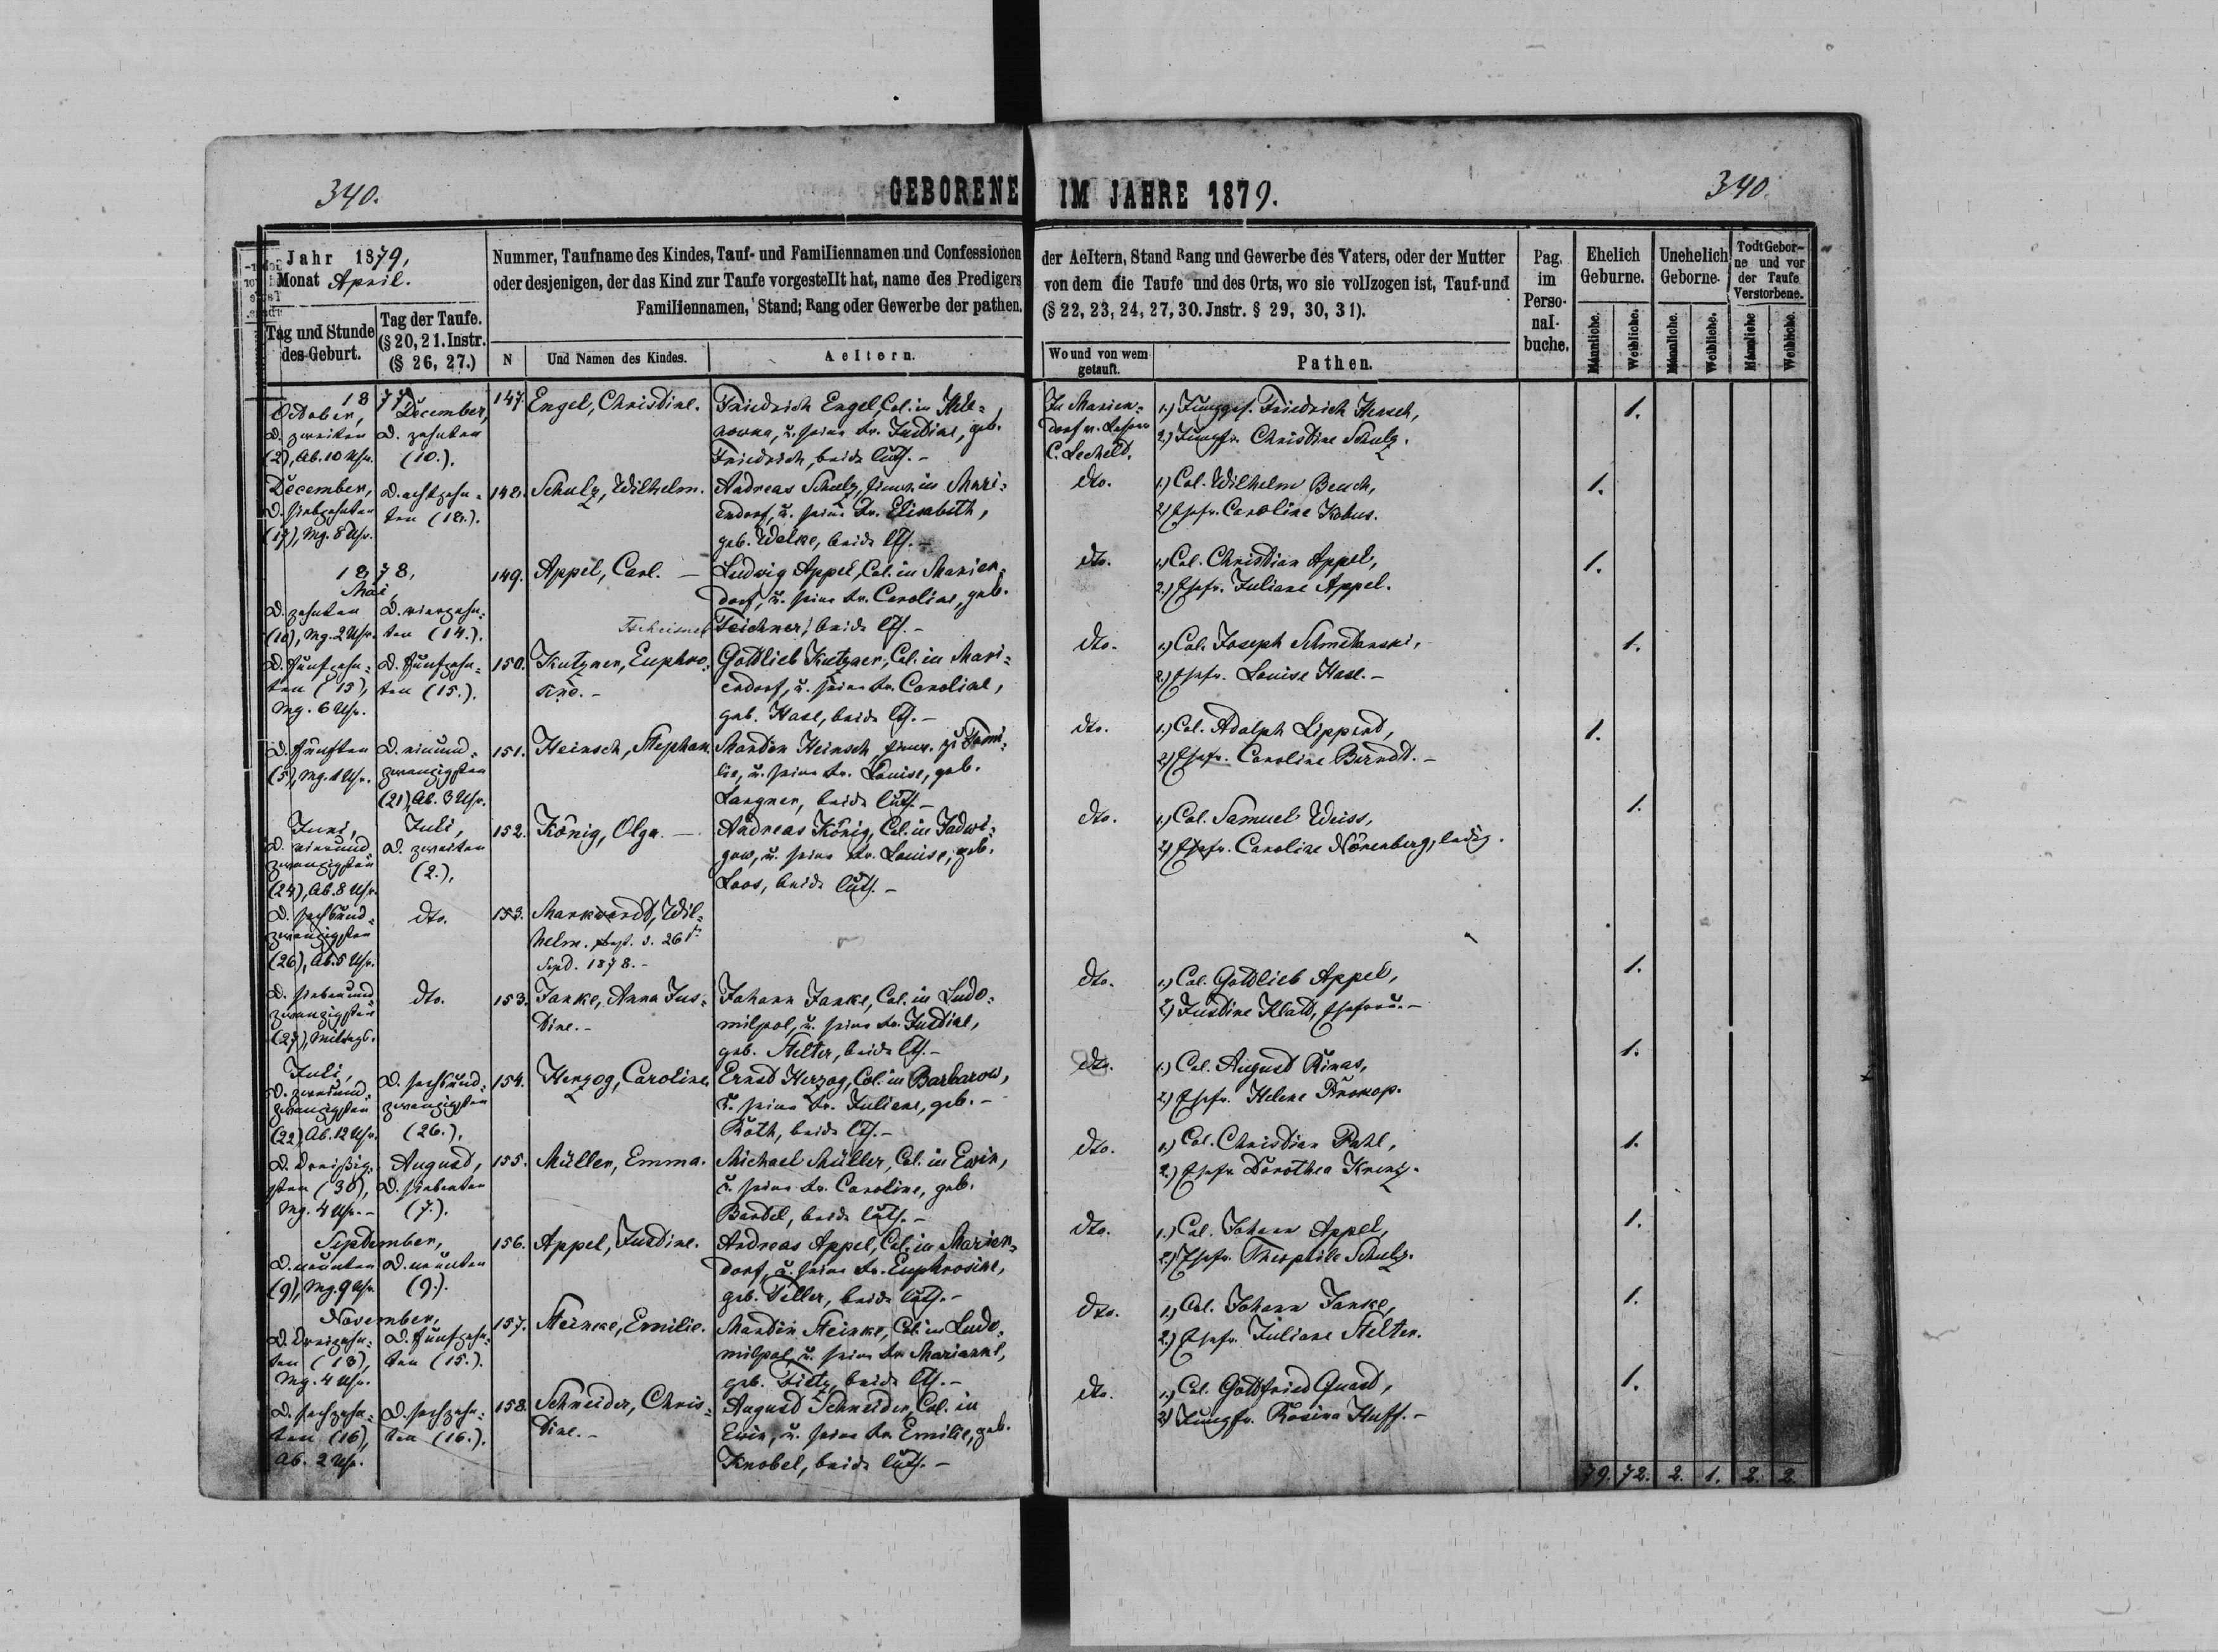 340.
GEBORENE IM JAHRE 1879.
340.
Jahr 1879,
Monat April.
Tag und Stunde
des Geburt.
Tag der Taufe.
(§ 20, 21. Instr.
(§ 26, 27.)
Nummer, Taufname des Kindes, Tauf- und Familiennamen und Confessionen
oder desjenigen, der das Kind zur Taufe vorgestellt hat, name des Predigers
Familiennamen, Stand; Rang oder Gewerbe der pathen.
N
Und Namen des Kindes.
Aeltern.
der Aeltern, Stand Rang und Gewerbe des Vaters, oder der Mutter
von dem die Taufe und des Orts, wo sie vollzogen ist, Tauf-und
(§ 22, 23, 24, 27, 30. Jnstr. § 29, 30, 31).
Wo und von wem
getauft.
Pathen.
Pag.
im
Perso-
nal-
buche.
Ehelich
Geburne.
Unehelich
Geborne.
Todt Gebor-
ne und vor
der Taufe
Verstorbene.
Männliche.
Weibliche.
Männliche.
Weibliche.
Männliche
Weibliche.
1877
October,
D. zweiten
(2), Ab. 10 Uhr.
December,
D. zehnten
(10.).
147.
Engel, Christine.
Friedrich Engel, Col. in
u. seine Fr. Justine, geb.
Friedrich, beide luth. -
In Marien-
dorf v. Pastor
1.) Junggs. Friedrich Hensch,
2.) Jungfr. Christine Schulz.
1.
December,
D. siebzehnten
(17), Mg. 8 Uhr.
D. achtzehn-
ten (18.).
148.
Schulz, Wilhelm.
Andreas Schulz, in Mari-
endorf, u. seine Fr. Elisabeth,
geb. Welke, beide lth. -
dto.
1.) Col. Wilhelm Beuch,
2.) Ehefr. Caroline Kobus.
1.
1878,
Mai,
D. zehnten
(10), Mg. 2 Uhr.
D. vierzehn-
ten (14.).
149.
Appel, Carl. -
Ludwig Appel, Col. in Marien-
dorf, u. seine Fr. Caroline, geb.
Teichner, beide lth. -
dto.
1.) Col. Christian Appel,
2.) Ehefr. Juliane Appel.
1.
D. fünfzehn-
ten (15),
Mg. 6 Uhr.
D. fünfzehn-
ten (15.).
150.
Kutzner, Euphro-
sine. -
Gottlieb Kutzner, Col. in Mari-
endorf, u. seine Fr. Caroline,
geb. Hase, beide lth. -
dto.
1.) Col. Joseph Schmetanski,
2.) Ehefr. Louise Hase. -
1.
D. fünften
(5), Mg. 1 Uhr.
D. einund-
zwanzigsten
(21), Ab. 3 Uhr.
151.
Heinsch, Stephan.
Martin Heinsch,
u. seine Fr. Louise, geb.
Langner, beide luth. -
dto.
1.) Col. Adolph Lippert,
2.) Ehefr. Caroline Berndt. -
1.
Juni,
D. vierund
zwanzigsten
(24), Ab. 8 Uhr.
Juli,
D. zweiten
(2.),
152.
König, Olga. -
Andreas König, Col. in Jadwi-
gow, u. seine Fr. Louise, geb.
Loos, beide luth. -
dto.
1.) Col. Samuel Weiss,
2.) Caroline Nörenberg, ledig.
1.
D. sechsund-
zwanzigsten
(26), Ab. 5 Uhr.
dto.
153.
Markwardt, Wil-
helm. gest. d. 26t
Sept. 1878. -
D. siebenund-
zwanzigsten
(27), Mittags.
dto.
153.
Janke, Anna Jus-
tine. -
Johann Janke, Col. in Ludo-
milpol, u. seine Fr. Justine,
geb. Stelter, beide lth. -
dto.
1.) Col. Gottlieb Appel,
2.) Justine Klatt, Ehefrau. -
1.
Juli,
D. zweiund-
zwanzigsten
(22), Ab. 12 Uhr.
D. sechsund-
zwanzigsten
(26.),
154.
Herzog, Caroline.
Ernst Herzog, Col. in Barbarow,
u. seine Fr. Juliane, geb. -
Roth, beide lth. -
dto.
1.) Col. August Rinas,
2.) Ehefr. Helene Prokop.
1.
D. dreißig-
sten (30),
Mg. 4 Uhr. -
August,
D. siebenten
(7.).
155.
Müller, Emma.
Michael Müller, Col. in Ewin,
u. seine Fr. Caroline, geb.
Bartel, beide luth. -
dto.
1.) Col. Christian Pahl,
2.) Ehefr. Dorothea Krenz.
1.
September,
D. neunten
(9), Mg. 9 Uhr.
D. neunten
(9.).
156.
Appel, Justine.
Andreas Appel, Col. in Marien-
dorf, u. seine Fr. Euphrosine,
geb. Teller, beide luth. -
dto.
1.) Col. Johann Appel,
2.) Ehefr. Theophile Schulz.
1.
November,
D. dreizehn-
ten (13),
Mg. 4 Uhr.
D. fünfzehn-
ten (15.).
157.
Steinke, Emilie.
Martin Steinke, Col. in Ludo-
milpol, u. seine Fr. Marianne,
geb. Tietz, beide lth. -
dto.
1.) Col. Johann Janke,
2.) Ehefr. Juliane Stelter.
1.
D. sechzehn-
ten (16),
Ab. 2 Uhr.
D. sechzehn-
ten (16.).
158.
Schneider, Chris-
tine. -
August Schneider, Col. in
Ewin, u. seine Fr. Emilie, geb.
Knobel, beide luth. -
dto.
1.) Col. Gottfried Quast,
2.) Jungfr. Rosina Huff. -
1.
79. 72. 2. 1. 2. 2.